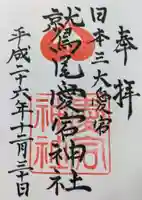 奉拝
日本三大愛宕
鷲尾愛宕神社
平成二十六年十二月三十日
愛宕
神社